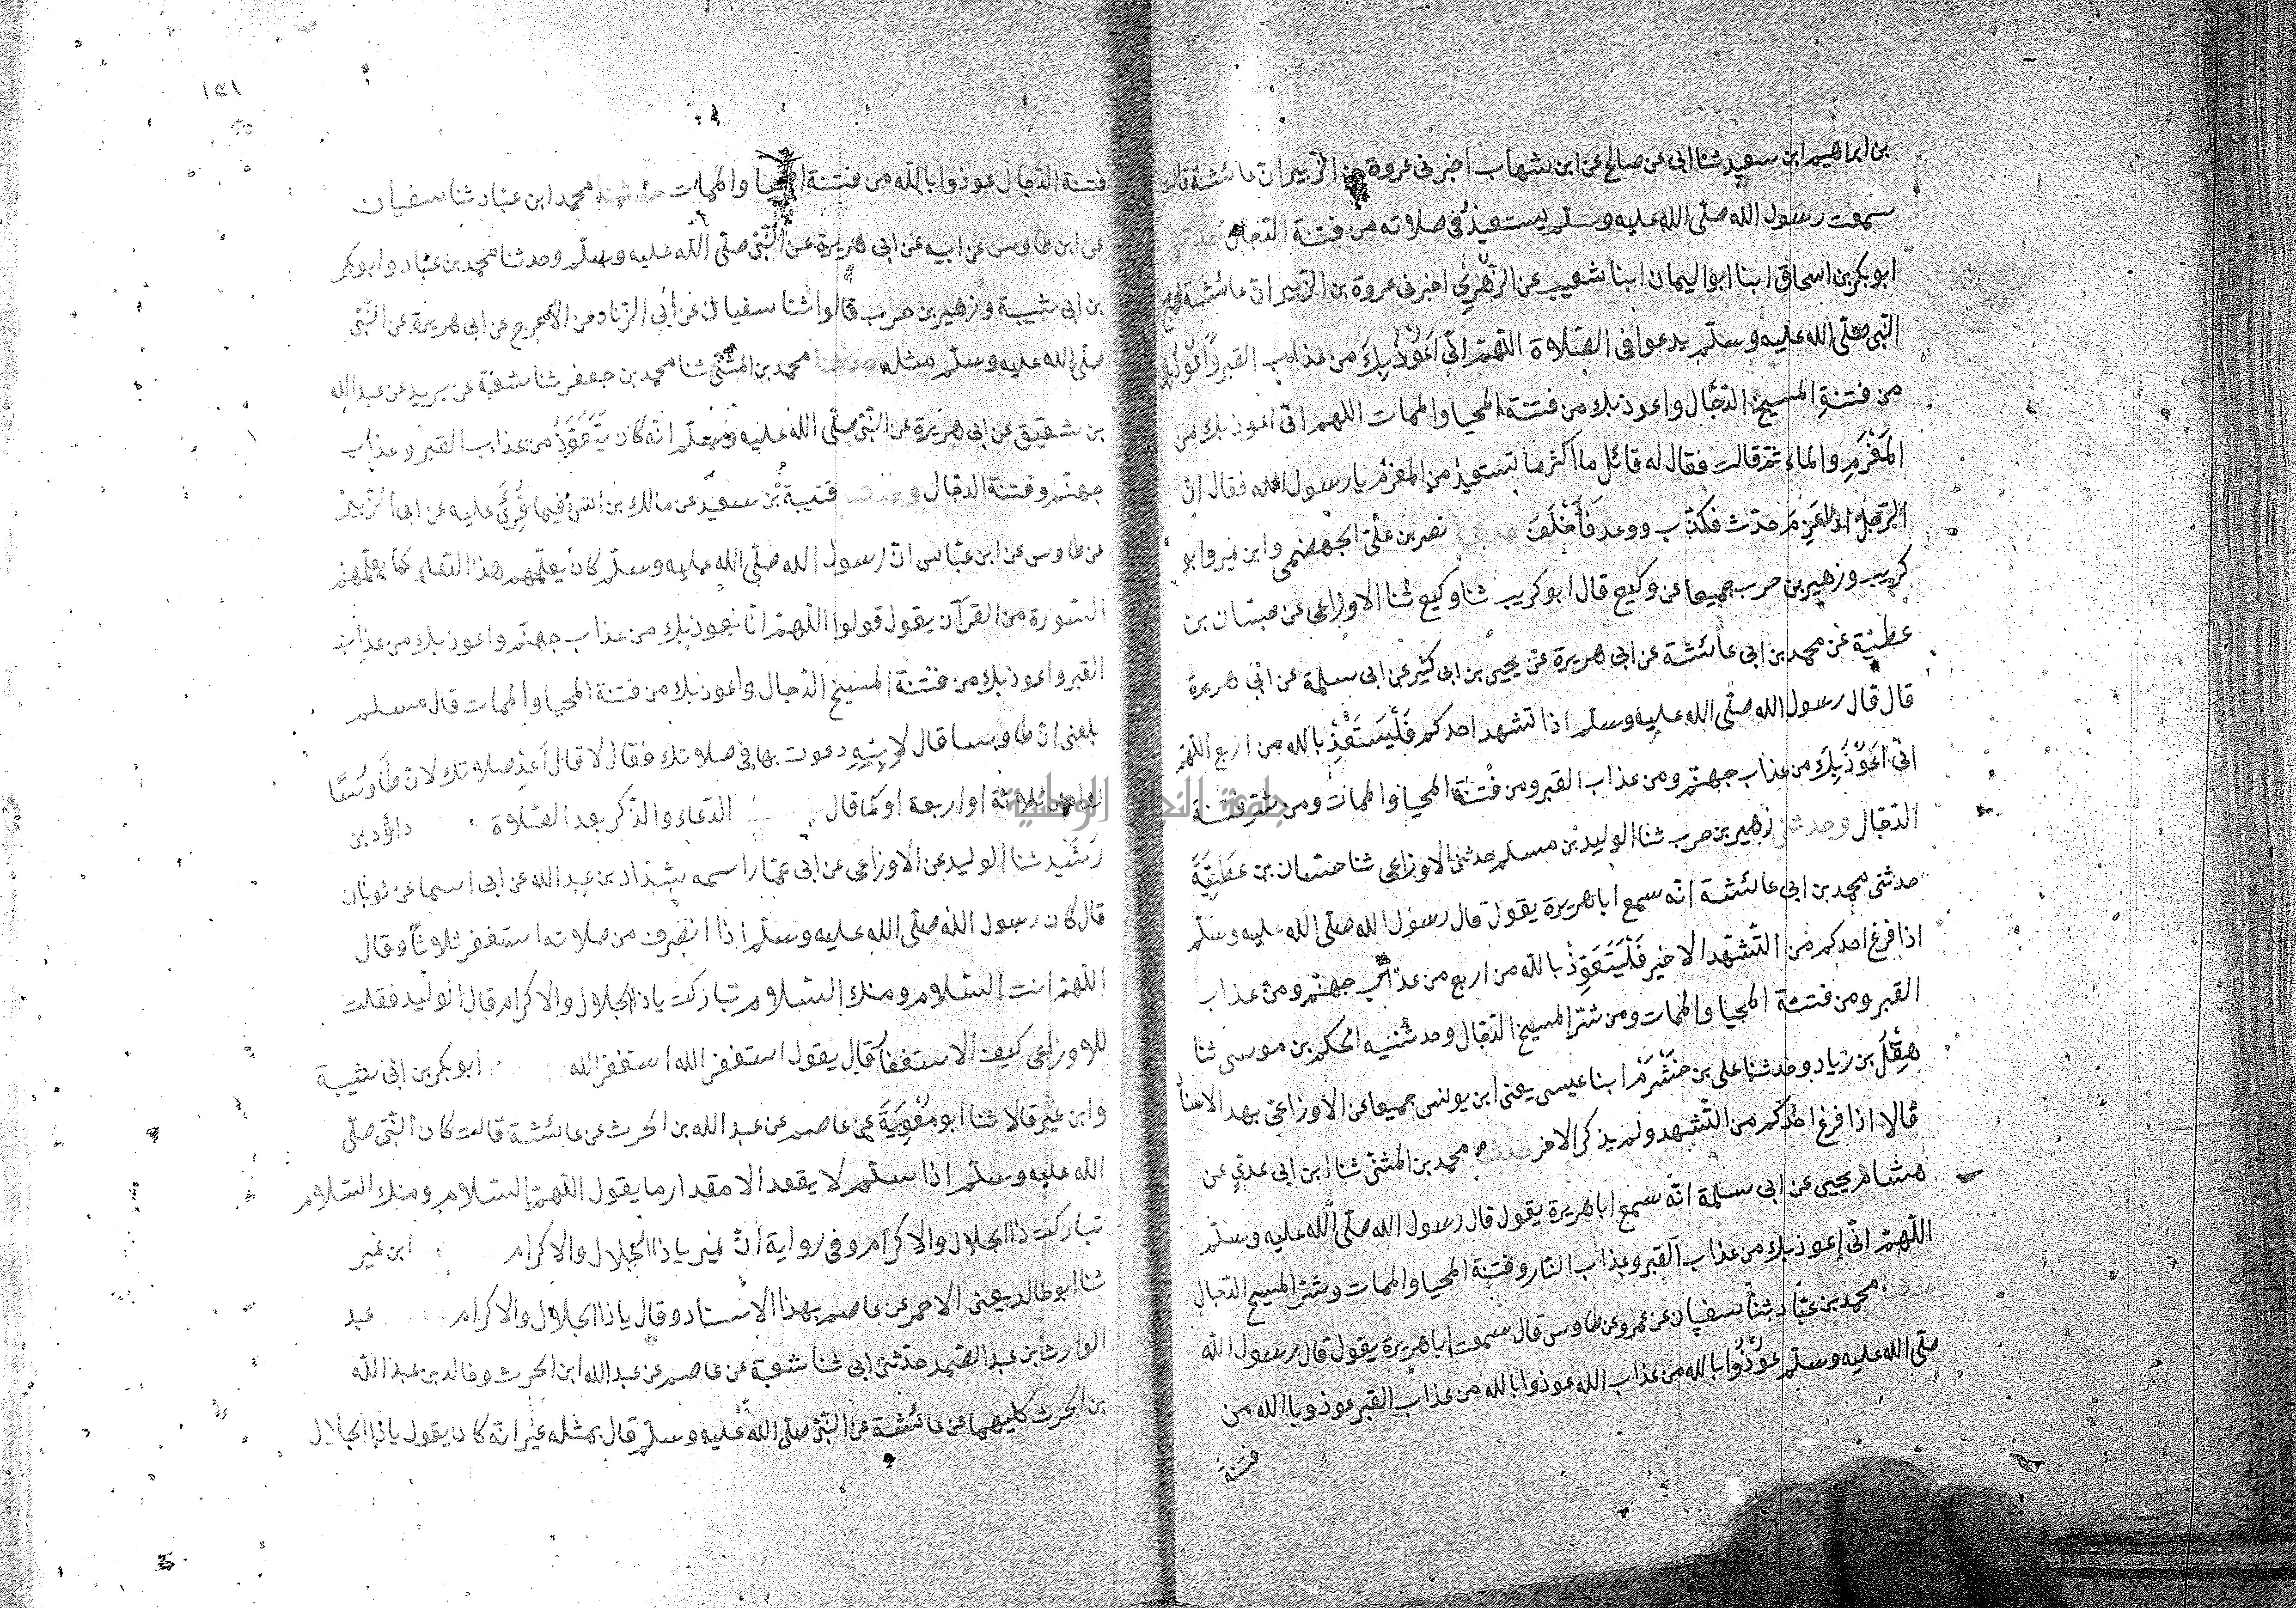 بن ابراهيم ابن سعيد ثنا ابى عن صالح عن ابن شهاب اخبرنى عروة بن الزبير ان عائشة قالت
سمعت رسول الله صلى الله عليه وسلم يستعيذ فى صلاته من فتنة الدجال حدثنى
ابو بكر بن اسحاق ابنا ابو اليمان ابنا شعيب عن الزُّهْرِيِّ اخبرنى عروة بن الزبير ان عائشة زوج
النبى صلى الله عليه وسلم يدعوا فى الصلاة اللهم انى اَعُوْذُ بِكَ من عذاب القبر وَاَعُوْذُ بك
من فتنةِ المسيح الدجَّال واعوذ بك من فتنة المحيا والممات اللهم انى اعوذ بك من
المَغْرَمِ والماءثم قالت فقال له قائل ما اكثر ما تستعيذ من المغرم يا رسول الله فقال ان
الرجل اذا غَرِمَ حدث فكذب ووعد فَأَخْلَفَ حدثنا نصر بن على الجهضمى وابن نمير وابو
كريب وزهير بن حرب جميعا عن وكيع قال ابو كريب ثنا وكيع ثنا الاوزاعى عن حسان بن
عطية عن محمد بن ابى عائشة عن ابى هريرة عن يحيى بن ابى كثير عن ابى سلمة عن ابى هريرة
قال قال رسول الله صلى الله عليه وسلم اذا تشهد احدكم فَلْيَسْتَعِذْ بالله من اربع اللهم
انى اَعُوْذُ بِكَ من عذاب جهنم ومن عذاب القبر ومن فتنة المحيا والممات ومن شر فتنة
الدجال وحدثنى زهير بن حرب ثنا الوليد بن مسلم حدثنى الاوزاعى ثنا حسان بن عَطِيَّةَ
حدثنى محمد بن ابى عائشة انه سمع ابا هريرة يقول قال رسول الله صلى الله عليه وسلم
اذا فرغ احدكم من التشهد الاخير فَلْيَتَعَوَّذْ بالله من اربع من عذاب جهنم ومن عذاب
القبر ومن فتنة المحيا والممات ومن شر المسيح الدجال وحدثنيه الحكم بن موسى ثنا
هِقْلُ بن زياد وحدثنا على بن خَشْرَمْ ابنا عيسى يعنى ابن يونس جميعا عن الاوزاعى بهذ الاسناد
قالا اذا فرغ احدكم من التشهد ولم يذكر الاخر حدثنا محمد بن المثنى ثنا ابن ابى عدي عن
هشام يحيى عن ابى سلمة انه سمع ابا هريرة يقول قال رسول الله صلى الله عليه وسلم
اللهم انى اعوذ بك من عذاب القبر وعذاب النار وفتنة المحيا والممات وشر المسيح الدجال
حدثنا محمد بن عباد ثنا سفيان عن عمرو عن طاوس قال سمعت ابا هريرة يقول قال رسول الله
صلى الله عليه وسلم عُوْذُوا بالله من عذاب الله عوذوا بالله من عذاب القبر عوذوبا الله من
فتنة
١٣١
فتنة الدجال عوذوا بالله من فتنة المحيا والممات حدثنا محمد ابن عباد ثنا سفيان
عن ابن طاوس عن ابيه عن ابى هريرة عن النبى صلى الله عليه وسلم وحدثنا محمد بن عباد وابو بكر
بن ابى شيبة وزهير بن حرب قالوا ثنا سفيان عن ابى الزناد عن الاعرج عن ابى هريرة عن النبى
صلى الله عليه وسلم مثله حدثنا محمد بن المثنى ثنا محمد بن جعفر ثنا شعبة عن بريد عن عبد الله
بن شقيق عن ابى هريرة عن النبى صلى الله عليه وسلم انه كان يَتَعَوَّذُ من عذاب القبر وعذاب
جهنم وفتنة الدجال وحدثنا قتيبةُ بْن سعيد عن مالك بن انس فيما قُرِئَ عليه عن ابى الزبير
عن طاوس عن ابن عباس ان رسول الله صلى الله عليه وسلم كان يعلمهم هذا الدعاء كما يعلمهم
السورة من القرآن يقول قولوا اللهم انا نعوذ بك من عذاب جهنم واعوذ بك من عذاب
القبر واعوذ بك من فتنة المسيح الدجال واعوذ بك من فتنة المحيا والممات قال مسلم
بلغنى ان طاوسا قال لِابْنِهِ دعوت بها فى صلاتك فقال لا قال اَعِدْ صلاتك لان طَاوُسًا
رواه عن ثلاثة او اربعة او كما قال الدعاء والذكر بعد الصلاة داؤد بن
رَشَيْد ثنا الوليد عن الاوزاعى عن ابى عمار اسمه شداد بن عبد الله عن ابى اسما عن ثوبان
قال كان رسول الله صلى الله عليه وسلم اذا انصرف من صلاته استغفر ثلاثًا وقال
اللهم انت السلام ومنك السلام تباركت ياذا الجلال والاكرام قال الوليد فقلت
للاوزاعى كيف الاستغفا قال يقول استغفر الله استغفر الله ابو بكر بن ابى شيبة
وابن نمير قالا ثنا ابو مُعْوِيَةَ عن عاصم عن عبد الله بن الحرث عن عائشة قالت كان النبى صلى
الله عليه وسلم اذا سلم لا يقعد الا مقدار ما يقول اللهم السلام ومنك السلام
تباركت ذا الجلال والاكرام وفى رواية ان نمير ياذا الجلال والاكرام ابن نمير
ثنا ابو خالد يعنى الاحمر عن عاصم بهذا الاسناد وقال ياذا الجلال والاكرام عبد
الوارث بن عبد الصمد حدثنى ابى ثنا شعبة عن عاصم عن عبد الله ابن الحرث وخالد بن عبد الله
بن الحرث كليهما عن عائشة عن النبى صلى الله عليه وسلم قال بمثله غير انه كان يقول ياذا الجلال
جامعة النجاح الوطنية